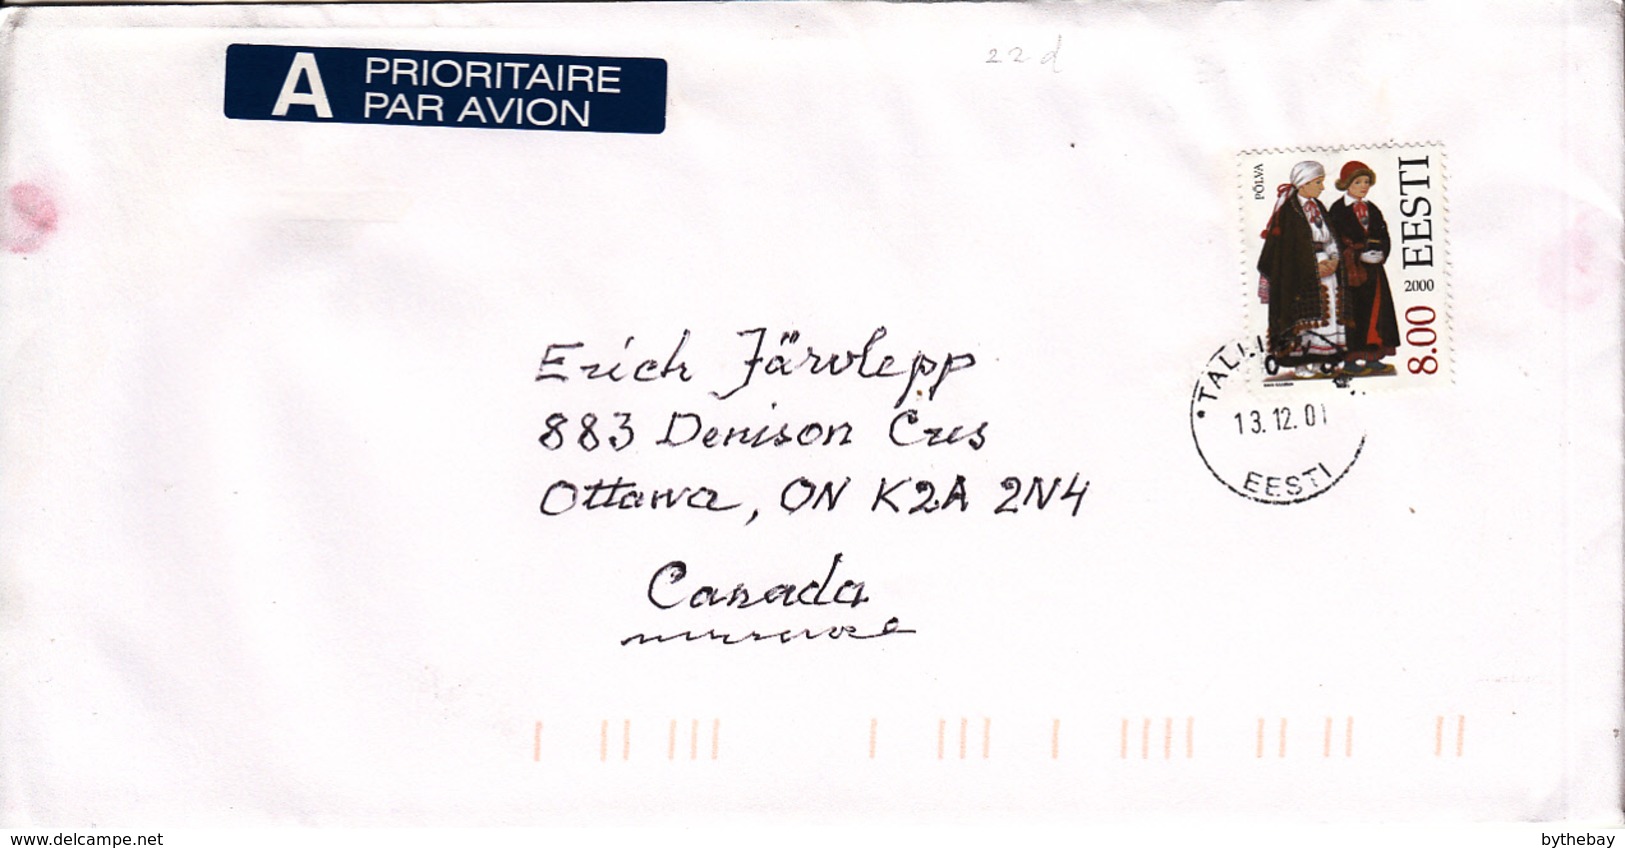 A PRIORITAIRE
PAR AVION
22 d
PÕLVA
EESTI
2000
8.00
TALLI
13.12.01
EESTI
Erich Järvlepp
883 Denison Cres
Ottawa, ON K2A 2N4
Canada
www.delcampe.net
bythebay